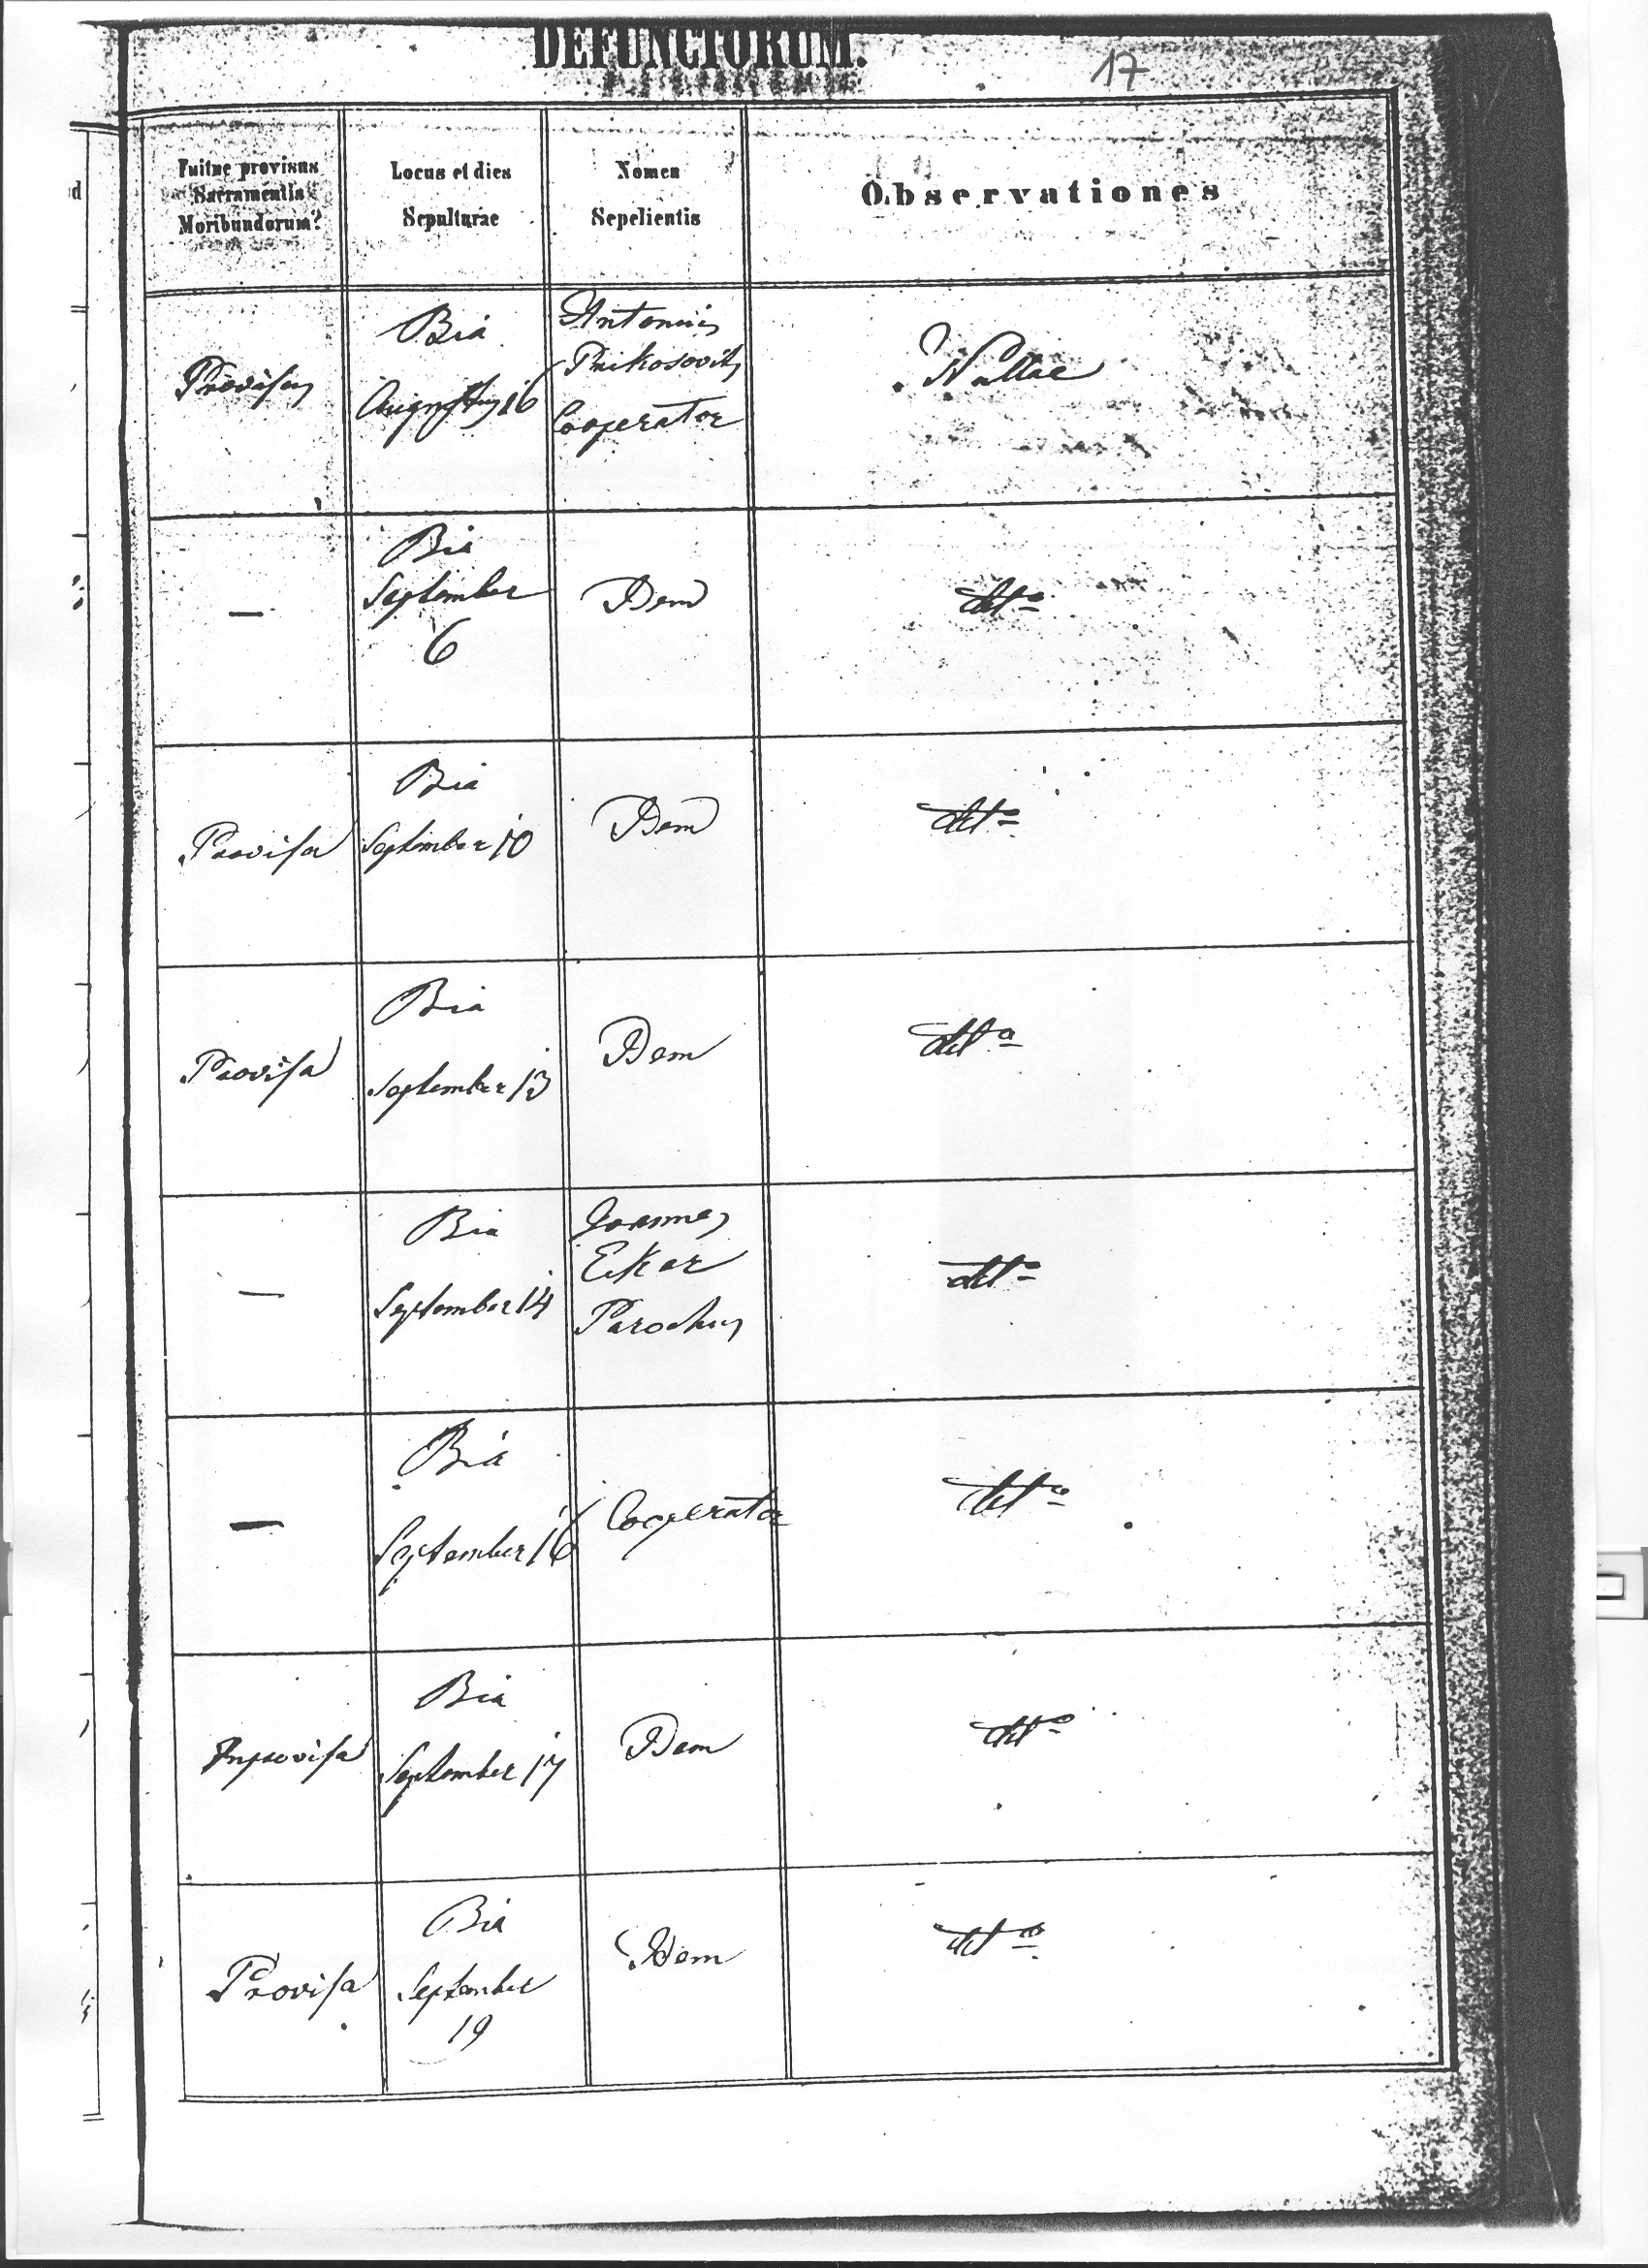 DEFUNCTORUM.
17
Fuitne provisus
Sacramentis
Moribundorum?
Locus et dies
Sepulturae
Nomen
Sepelientis
Observationes
Provisus
Bia
Augustus 16
Antonius
Cooperator
Nullae
—
Bia
September
6
Idem
detto
Provisa
Bia
September 10
Idem
detto
Provisa
Bia
September 13
Idem
detto
—
Bia
September 14
Joannes
Eker
Parochus
detto
—
Bia
September 16
Cooperator
detto
Improvisa
Bia
September 17
Idem
detto
Provisa
Bia
September
19
Idem
detto